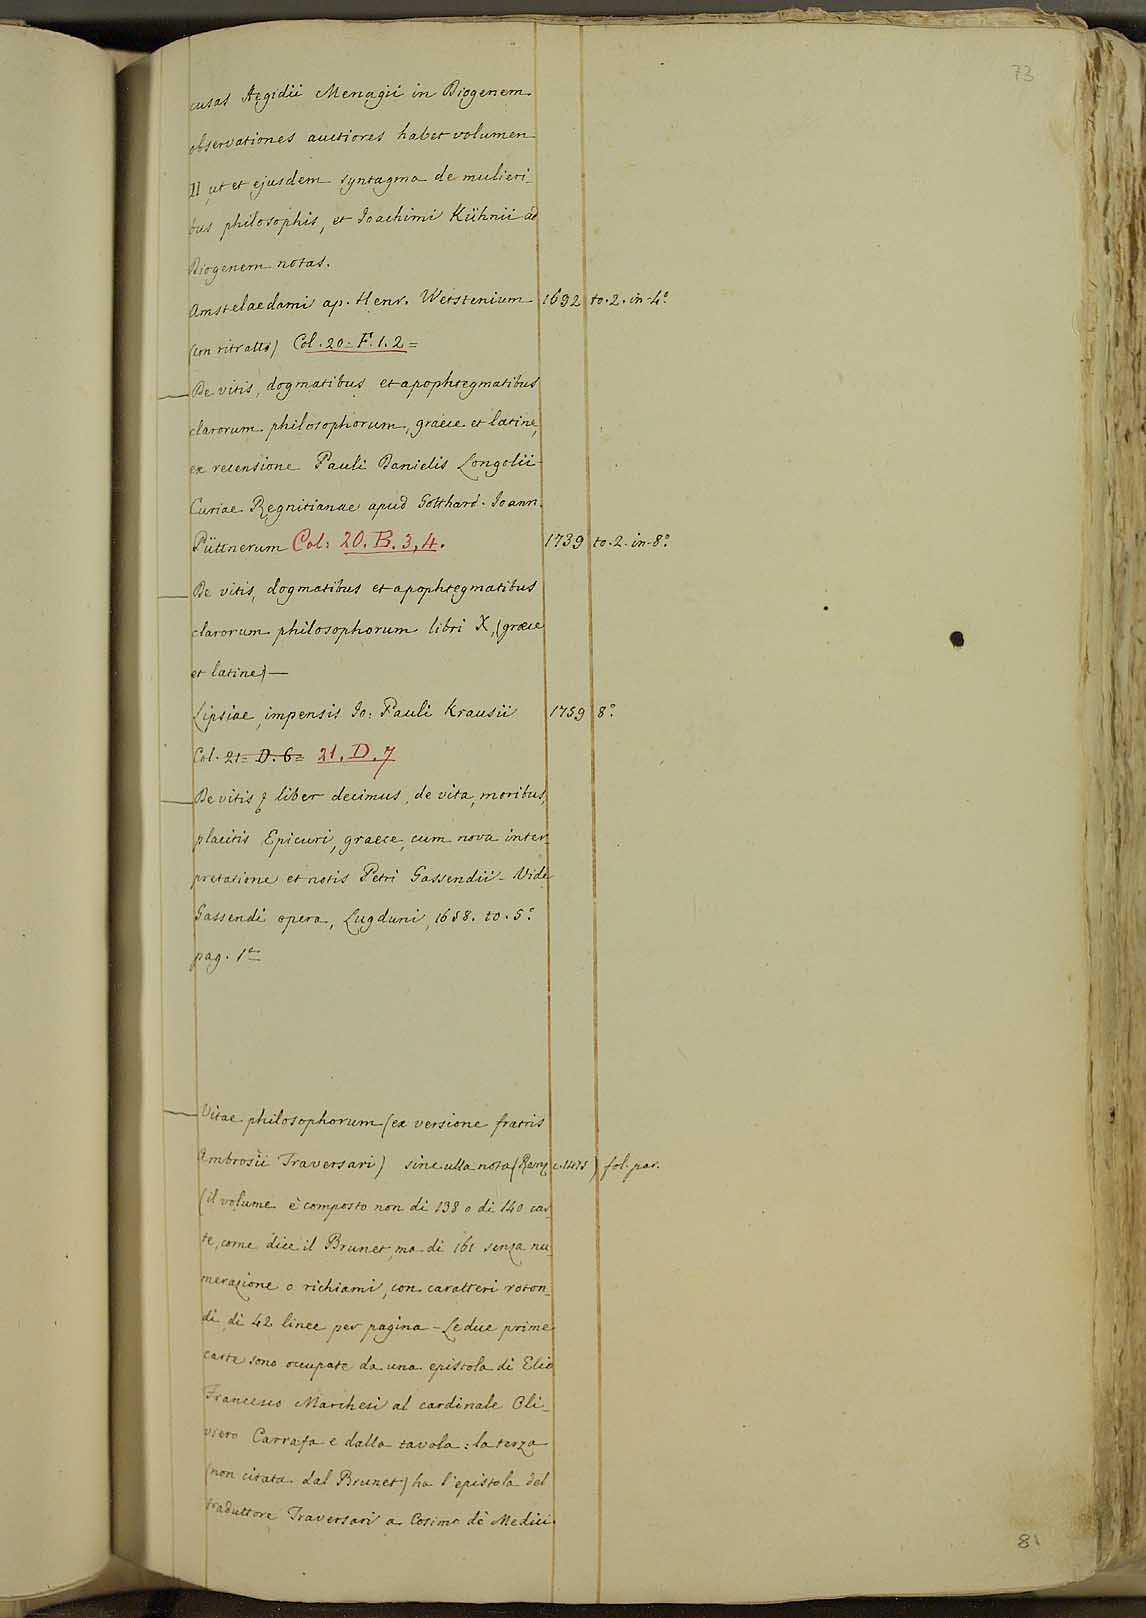 73
cusas Aegidii Menagii in Diogenem
observationes auctiores habet volumen
II ut et ejusdem syntagma de mulieri-
bus philosophis, et Joachimi Kühnii ad
Diogenem notas.
Amstelaedami ap. Henr. Wetstenium 1692 to. 2. in-4.º
(con ritratto) Col. 20. F. 1. 2 =
De vitis, dogmatibus et apophtegmatibus
clarorum philosophorum, graece et latine,
ex recensione Pauli Danielis Longolii-
Curiae Regnitianae apud Gotthard. Joann.
Püttnerum Col: 20. B. 3, 4. 1739 to. 2. in-8.º
De vitis, dogmatibus et apophtegmatibus
clarorum philosophorum libri X, (graece
et latine) —
Lipsiae, impensis Jo: Pauli Krausii 1759 8.º
Col. 21= D. 6= 21. D. 7
De vitis liber decimus, de vita, moribus,
placitis Epicuri, graece, cum nova inter-
pretatione et notis Petri Gassendii - Vide
Gassendi opera, Lugduni, 1658. to. 5.º
pag. 1ª
Vitae philosophorum (ex versione fratris
Ambrosii Traversari) sine ulla nota (Romę c. 1475) fol. par.
(il volume è composto non di 138 o di 140 car-
te, come dice il Brunet, ma di 161 senza nu-
merazione o richiami, con caratteri roton-
di, di 42 linee per pagina - Le due prime
carte sono occupate da una epistola di Elio
Francesco Marchesi al cardinale Oli-
viero Carrafa e dalla tavola: la terza
(non citata dal Brunet) ha l'epistola del
traduttore Traversari a Cosimo de Medici.
81